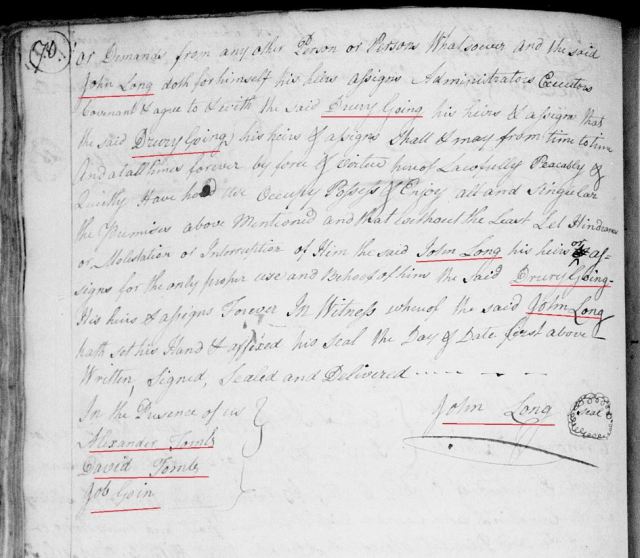 70.
or Demands from any other Person or Persons Whatsoever and the said
John Long doth for himself his heirs assigns Administrators Executors
Covenant & agree to & with the said Drury Going his heirs & assigns that
the said Drury Going, his heirs & assigns Shall & may from time to time
And at all times forever by force & Virtue hereof Lawfully Peacably &
Quietly Have hold Use Occupy Possess & Enjoy all and Singular
the Premises above Mentioned and that without the Least Let Hindrance
or Molestation or Interruption of Him the said John Long his heirs or as-
signs for the only proper use and Behoof of him the Said Drury Going-
His heirs & assigns Forever In Witness whereof the said John Long
hath set his Hand & affixed his Seal the Day & Date first above
Written, Signed, Sealed and Delivered
In the Presence of us
John Long
Seal
Alexander Tomb
David Tomb
Job Goin